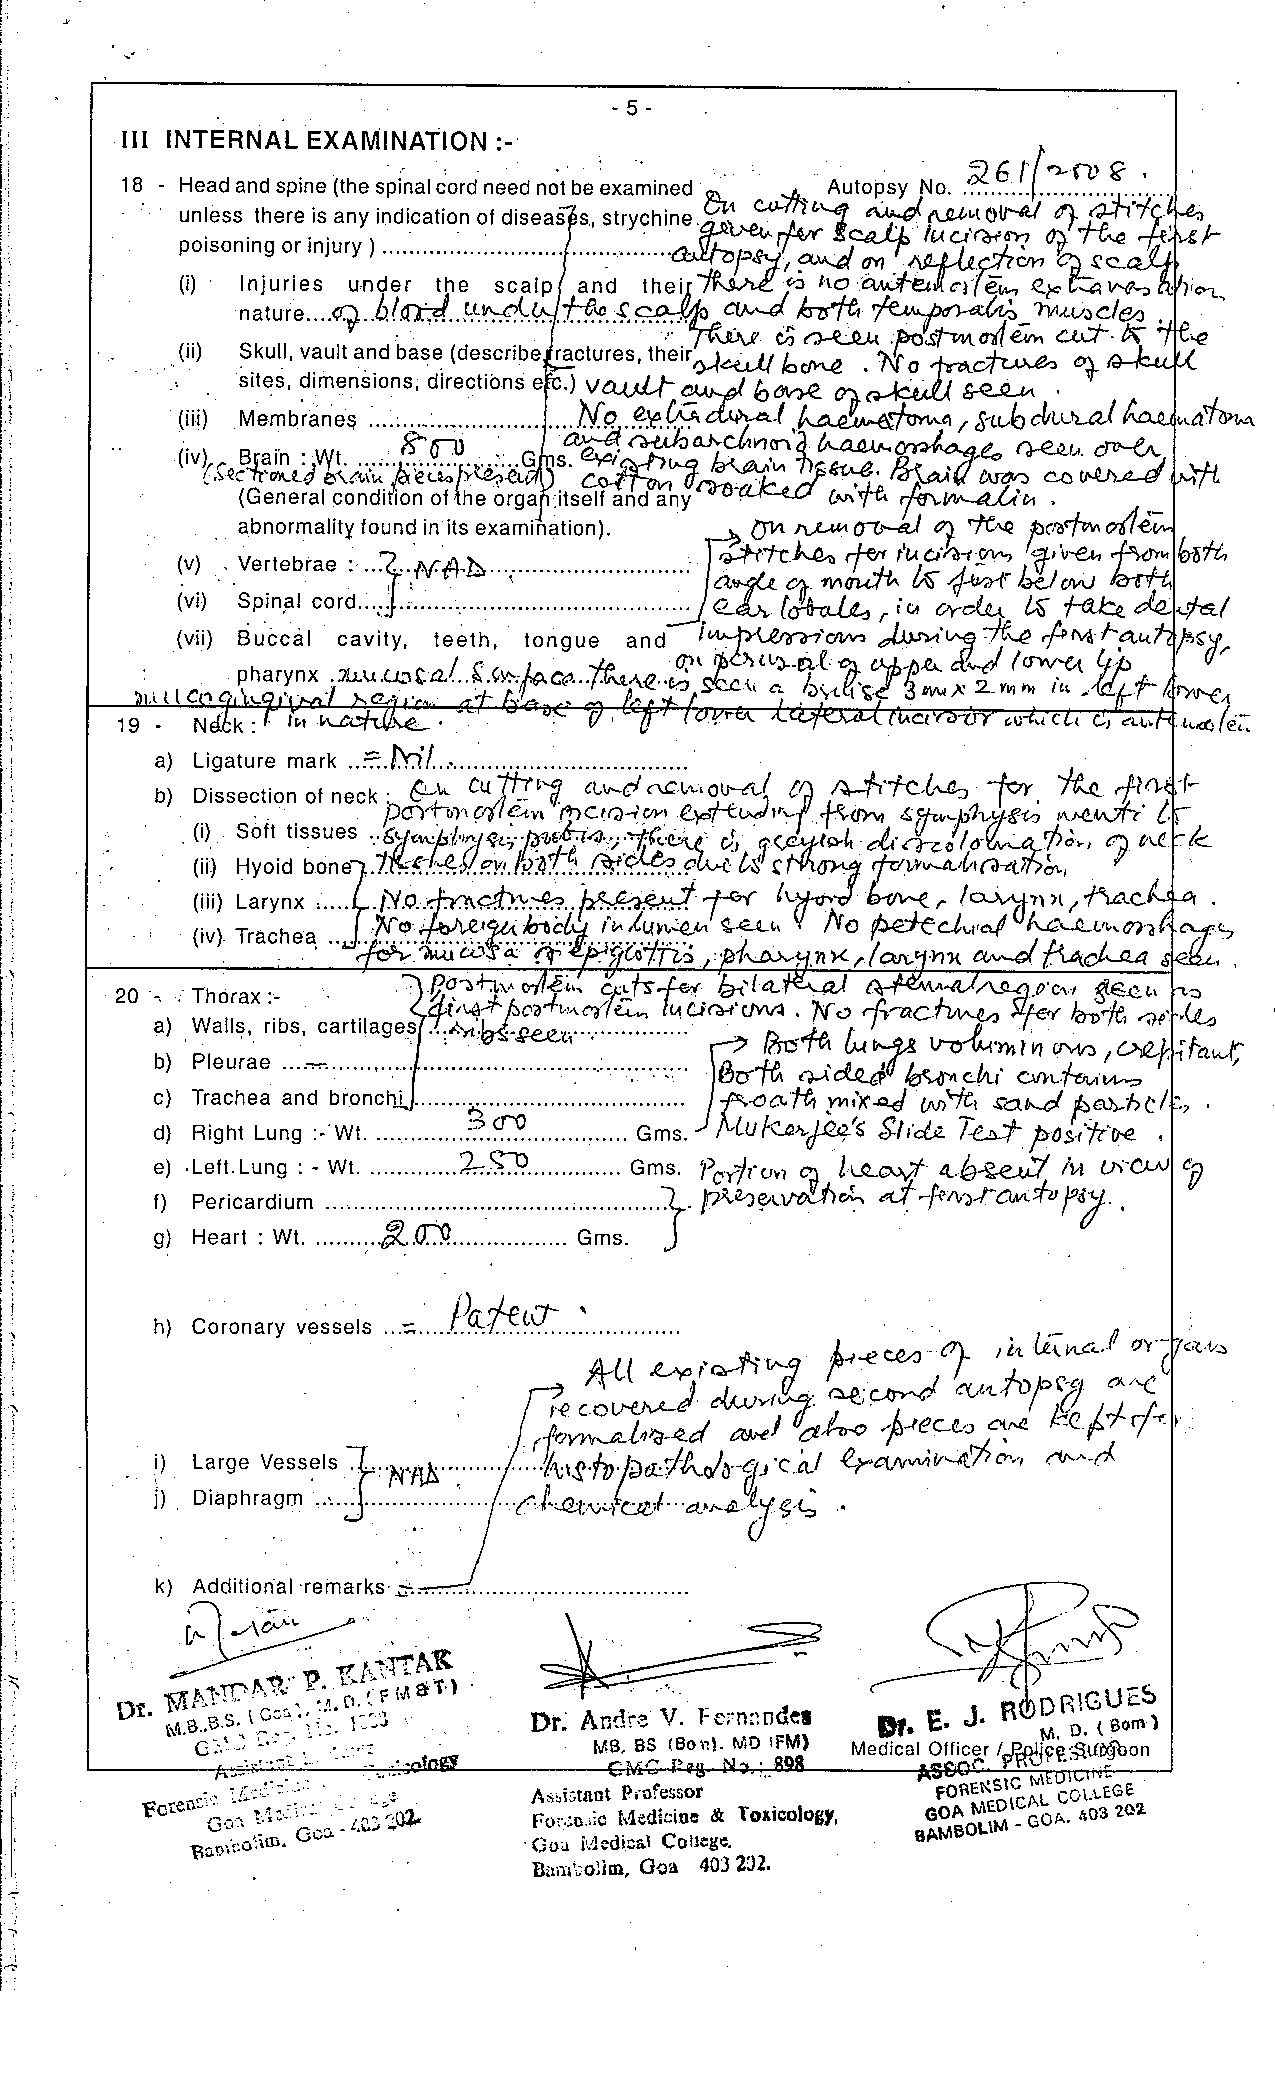 - 5 -
III INTERNAL EXAMINATION :-
18 - Head and spine (the spinal cord need not be examined Autopsy No. 261/2008.
unless there is any indication of diseases, strychine On cutting and removal of stitches
poisoning or injury ) given for scalp incision of the first
autopsy, and on reflection of scalp
(i) Injuries under the scalp and their there is no antemortem extravasation
nature of blood under the scalp and both temporalis muscles.
There is seen postmortem cut to the
(ii) Skull, vault and base (describe fractures, their skull bone. No fractures of skull
sites, dimensions, directions etc.) vault and base of skull seen.
(iii) Membranes No extradural haematoma, subdural haematoma
and subarchnoid haemorrhages seen over
(iv) Brain : Wt. 800 Gms. existing brain tissue. Brain was covered with
(sectioned brain pieces present) cotton soaked with formalin.
(General condition of the organ itself and any
abnormality found in its examination). On removal of the postmortem
(v) Vertebrae : NAD stitches for incisions given from both
angle of mouth to just below both
(vi) Spinal cord ear lobules, in order to take dental
(vii) Buccal cavity, teeth, tongue and impressions during the first autopsy,
on perusal of upper and lower lip
pharynx mucosal surface there is seen a bruise 3mm x 2mm in left lower
region at base of left lower lateral incisor which is antemortem
19 - Neck : in nature.
a) Ligature mark = Nil.
b) Dissection of neck : On cutting and removal of stitches for the first
postmortem incision extending from symphysis menti to
(i) Soft tissues symphysis pubis, there is greyish discolouration of neck
(ii) Hyoid bone tissues on both sides due to strong formalisation
(iii) Larynx : No fractures present for hyoid bone, larynx, trachea.
(iv) Trachea No foreign body in lumen seen. No petechial haemorrhages
for mucosa of epiglottis, pharynx, larynx and trachea seen.
20 - Thorax :- Postmortem cuts for bilateral sternal region seen as
first postmortem incisions. No fractures for both sides
a) Walls, ribs, cartilages ribs seen
b) Pleurae Both lungs voluminous, crepitant,
Both sided bronchi contains
c) Trachea and bronchi froath mixed with sand particles.
d) Right Lung :- Wt. 300 Gms. Mukerjee's Slide Test positive.
e) Left Lung : - Wt. 250 Gms. Portion of heart absent in view of
f) Pericardium preservation at first autopsy.
g) Heart : Wt. 200 Gms.
h) Coronary vessels = Patent.
All existing pieces of internal organs
recovered during second autopsy are
formalised and also pieces are kept for
i) Large Vessels NAD histopathological examination and
j) Diaphragm chemical analysis.
k) Additional remarks
Dr. MANDAR P. KANTAK
M.B.,B.S. (Goa), M.D. (FM&T)
Forensic
Goa Medical College
Bambolim, Goa - 403 202.
Dr. Andre V. Fernandes
MB, BS (Bom). MD (FM)
GMC Reg. No.: 898
Assistant Professor
Forensic Medicine & Toxicology,
Goa Medical College,
Bambolim, Goa 403 202.
Dr. E. J. RODRIGUES
M. D. (Bom)
Medical Officer / Police Surgeon
ASSOC. PROFESSOR
FORENSIC MEDICINE
GOA MEDICAL COLLEGE
BAMBOLIM - GOA. 403 202